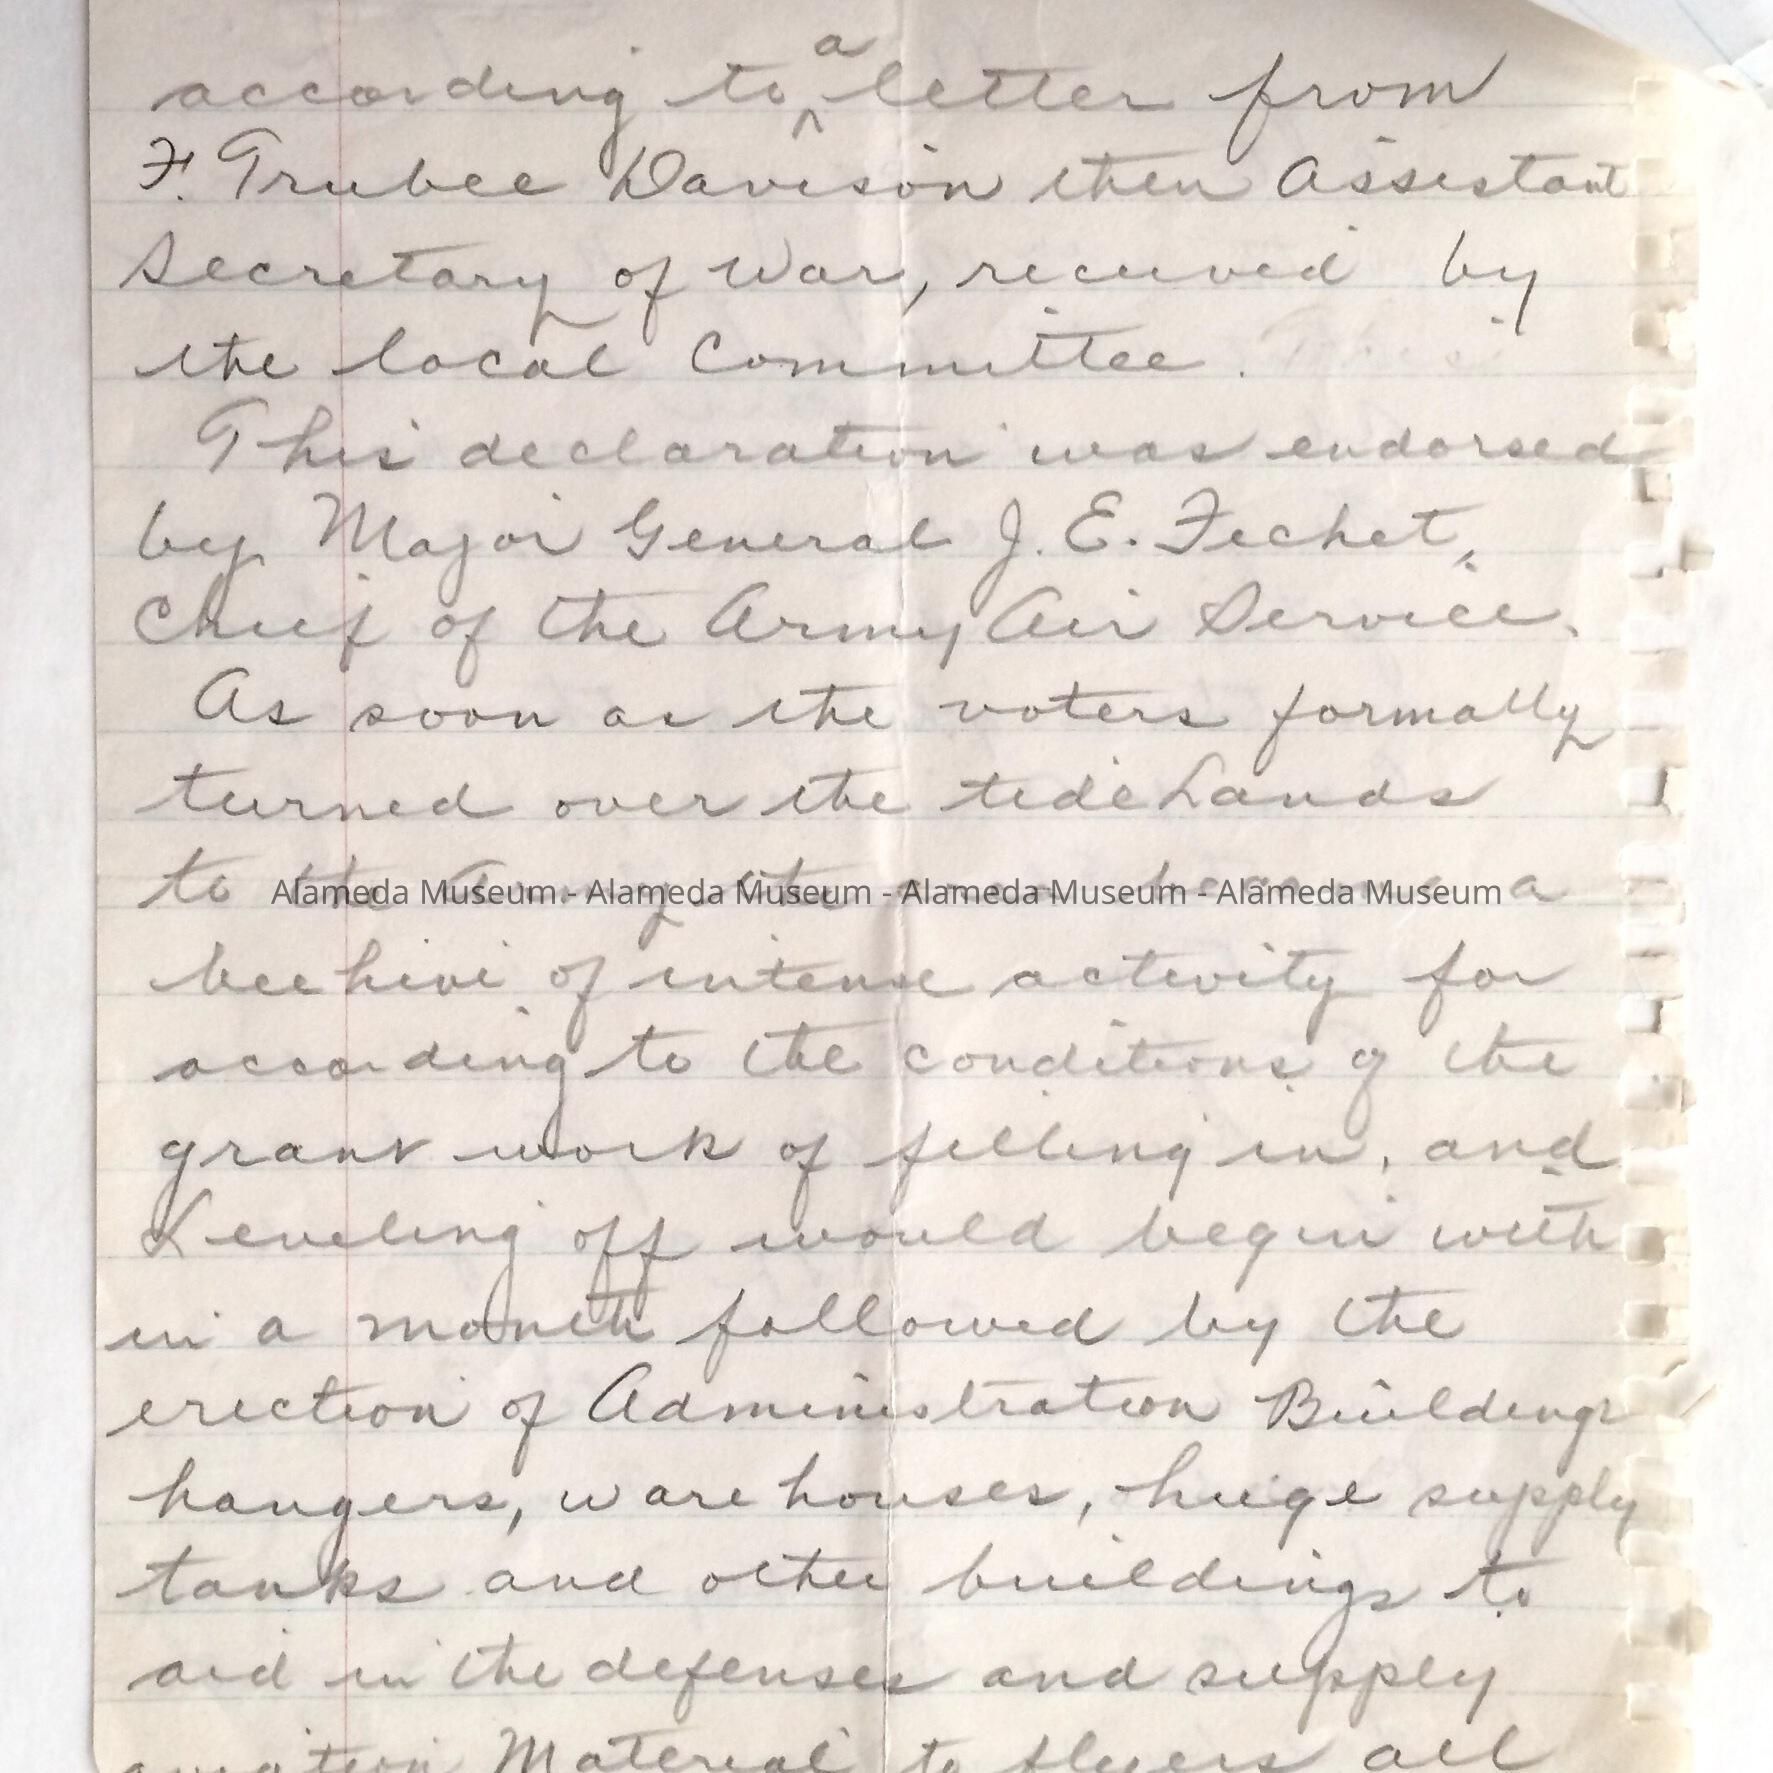 according to a letter from
F. Trubee Davison then Assistant
Secretary of War, received by
the local Committee.
This declaration was endorsed
by Major General J. E. Fechet,
Chief of the Army Air Service.
As soon as the voters formally
turned over the tide Lands
to the Army a
Alameda Museum - Alameda Museum - Alameda Museum - Alameda Museum
beehive of intense activity for
according to the conditions of the
grant work of filling in, and
Leveling off would begin with
in a month followed by the
erection of Administration Buildings
hangers, ware houses, huge supply
tanks and other buildings to
aid in the defenses and supply
aviation Material to flyers all